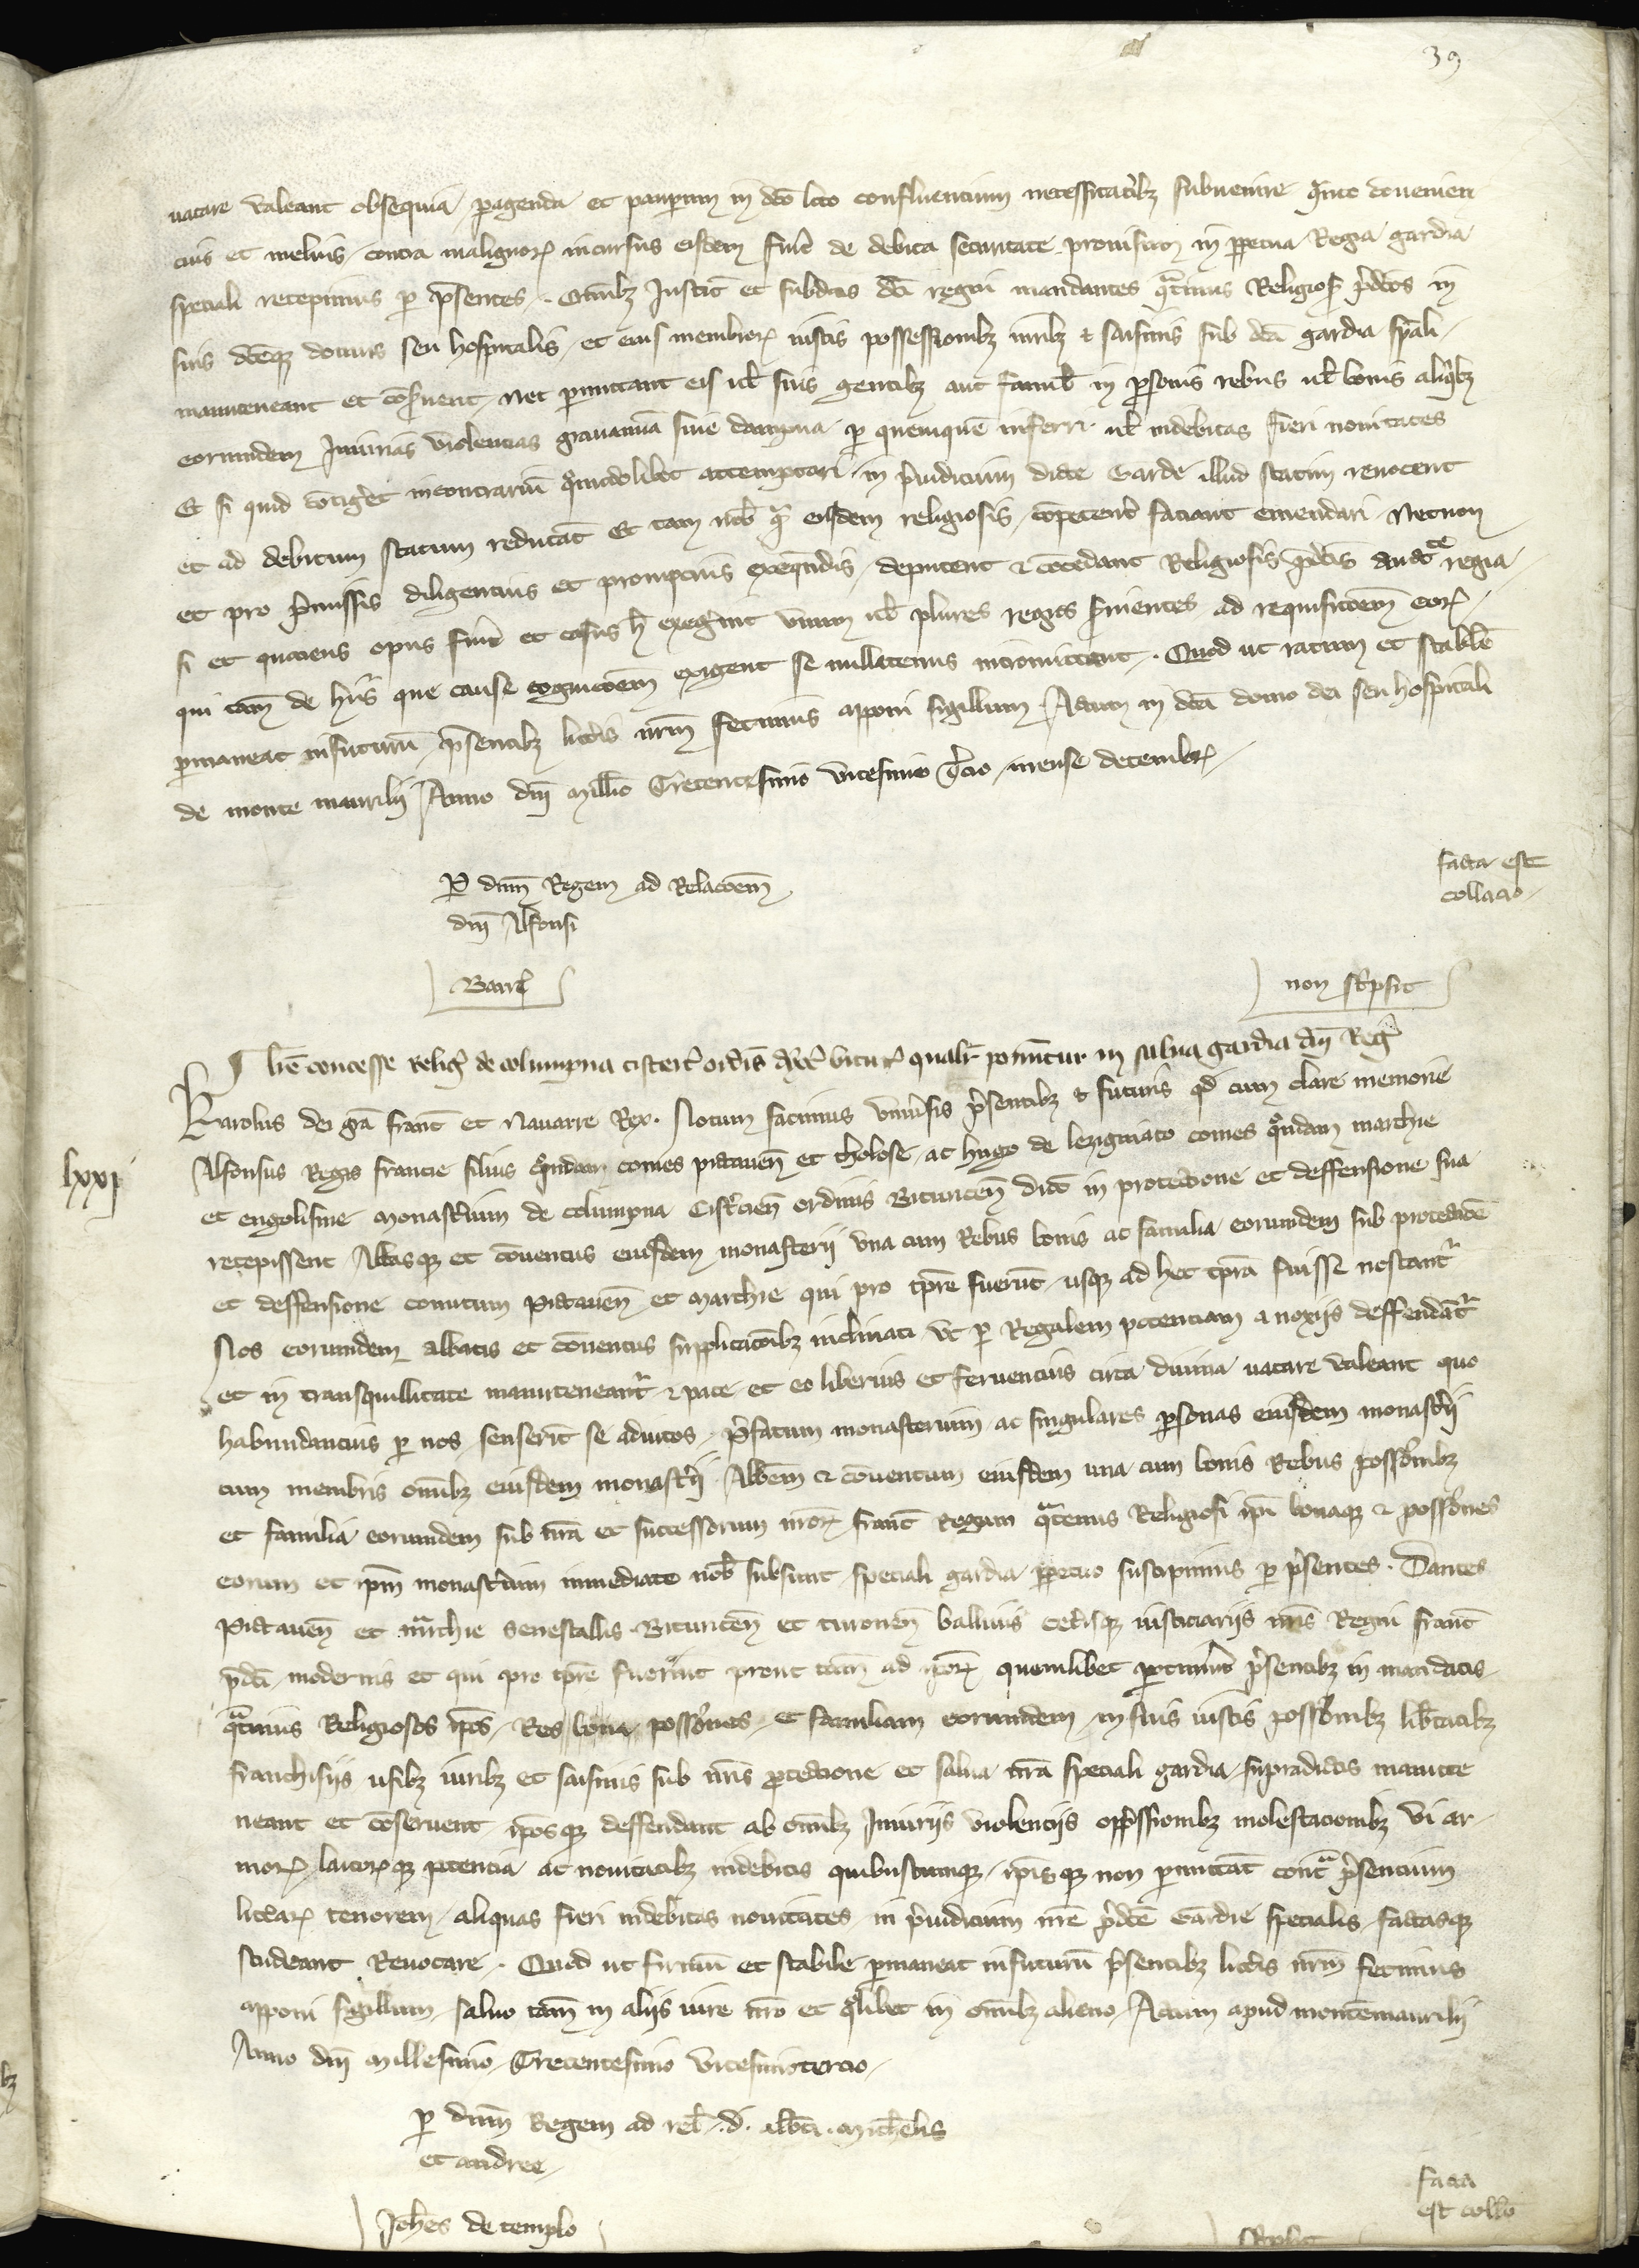 39
vacare valeant obsequia p̱agenda et paup̱um in dc̄o loco confluencium necessitatibꝫ subuenire qͣnto conuenien
cius et melius contra malignorꝝ incursus eisdem fuit̉ de debita securitate prouisum in p̱petua Regia gardia
speciali recepimus ꝑ p̱sentes. Om̄ibꝫ Justic̄ et subditis dc̄i regni mandantes qͣtinus Religios̉ p̱dc̄os in
suis dc̄eqꝫ domus seu hospitalis et eius membrorꝝ iustis possessionibꝫ iuribꝫ ⁊ saisinis sub dc̄a gardia sp̄ali
manuteneant et cōs̉uent nec ꝑmittant eis ul̄ suis gentibꝫ aut famil̄ in ꝑsonis rebus ul̄ bonis aliqͥbꝫ
eorumdem Iniurias violencias grauamīa siue dampna ꝑ quemquē inferri ul̄ indebitas fieri nouitates
Et si quid cōtig̉et incontrariū qͦmodolibet attemptari in p̉iudicium dicte Garde illud statim reuocent
et ad debitum statum reducāt Et tam nob̄ qͣ eisdem religiosis cōpetent̉ faciant emendari Necnon
et pro p̉missis diligencius et prompcius exeqͣndis deputent ⁊ cōcedant Religiosis p̱dc̄is auctᶜᵉ regia
si et quociens opus fuit̉ et casus h̄ exeg̉int vnum ul̄ plures regios s̉uientes ad requisicōem eorꝝ
qui tam̄ de hijs que cause cognicōem exigent se nullatenus intromittant. Quod ut ratum et stabile
ꝑmaneat infuturū p̱sentibꝫ litt̉is nr̄m fecimus apponi sigillum. Actum in dc̄a domo dei seu hospitali
de monte maurilij Anno dn̄i Mill̄io Trecentesimo vicesimo t̉cio mense decembrꝝ
ꝑ dn̄m Regem ad Relacōem
dn̄i Alfonsi
facta est
collacio
Barr̄
non sc̉psit
lxxj
lr̄e concesse relig̉ de columpna cisterc̉ ordīs dyoc̉ bitur̉ qualit̉ ponuntur in salua gardia dn̄i Reg̉
Karolus dei gr̄a franc̄ et Nauarre Rex. Notum facimus vniủsis p̉sentibꝫ ⁊ futuris qd̉ cum clare memorie
Alfonsus Regis francie filius qͦndam comes pictauen̄ et tholose ac hugo de leziguiaco comes qͦndam marchie
et engolisme monast̉ium de columpna Cist̉cien̄ ordinis Bituricen̄ dioc̄ in protectione et deffensione sua
recepissent Abbasqꝫ et cōuentus eiusdem monasterij vna cum Rebus bonis ac familia eorumdem sub protectiōe
et deffensione comitum pictauen̄ et marchie qui pro tp̄re fuerūt usqꝫ ad hec tp̄ra fuisse noscant̉
Nos eorumdem abbatis et cōuentus supplicacōibꝫ inclinati ut ꝑ Regalem potenciam a noxijs deffendāt̉
et in tranquillitate manuteneant̉ ⁊ pace et eo liberius et feruencius circa diuina vacare valeant quo
habundancius ꝑ nos senserīt se adiutos p̉fatum monasterium ac singulares ꝑsonas eiusdem monast̉ij
cum membris om̄ibꝫ eiusdem monast̉ij Abb̄em ⁊ cōuentum eiusdem una cum bonis Rebus poss̉ionibꝫ
et familia eorumdem sub nr̄a et successorum nr̄orꝝ franc̄ Regum qͣtenus Religiosi ip̄i bonaqꝫ ⁊ poss̉iones
eorum et ip̄m monast̉ium inmediate nob̄ subsunt speciali gardia ꝑpetuo suscipimus ꝑ p̉sentes. Dantes
Pictauen̄ et mͣrchie senescallis Bituricen̄ et turonen̄ balliuis cet̉isqꝫ iusticiarijs nr̄is Regni franc̄
p̱dc̄i modernis et qui pro tp̄re fuerint prout tam̄ ad ip̄orꝝ quemlibet ꝑtinuit̉ p̉sentibꝫ in mandatis
qͣtinus Religiosos ip̄os Res bona poss̉iones et familiam eorumdem in suis iustis poss̉ionibꝫ lib̉tatibꝫ
franchisijs usibꝫ iuribꝫ et saisinis sub nr̄is ꝓtectione et salua nr̄a speciali gardia supradictis manute
neant et cōseruent ip̄osqꝫ deffendant ab om̄ibꝫ Iniurijs violencijs opp̉ssionibꝫ molestacionibꝫ vi ar
morꝝ laicorꝝqꝫ potencia ac nouitatibꝫ indebitis quibuscumqꝫ ip̄isqꝫ non ꝑmittāt contͣ p̉sencium
litt̉arꝝ tenorem aliquas fieri indebitas nouitates in p̉iudicium nr̄e p̉dc̄e Gardie specialis factasqꝫ
studeant Reuocare. Quod ut firmū et stabile ꝑmaneat infuturū p̉sentibꝫ litt̉is nr̄m fecimus
apponi sigillum saluo tam̄ in alijs iure nr̄o et qͦlibet in om̄ibꝫ alieno. Actum apud montēmaurilij
Anno dn̄i Millesimo Trecentesimo vicesimotercio
ꝑ dn̄m Regem ad rel̄. d. alb̄ti. Mich̄elis
et andree
Joh̄es de templo
facta
est coll̄o